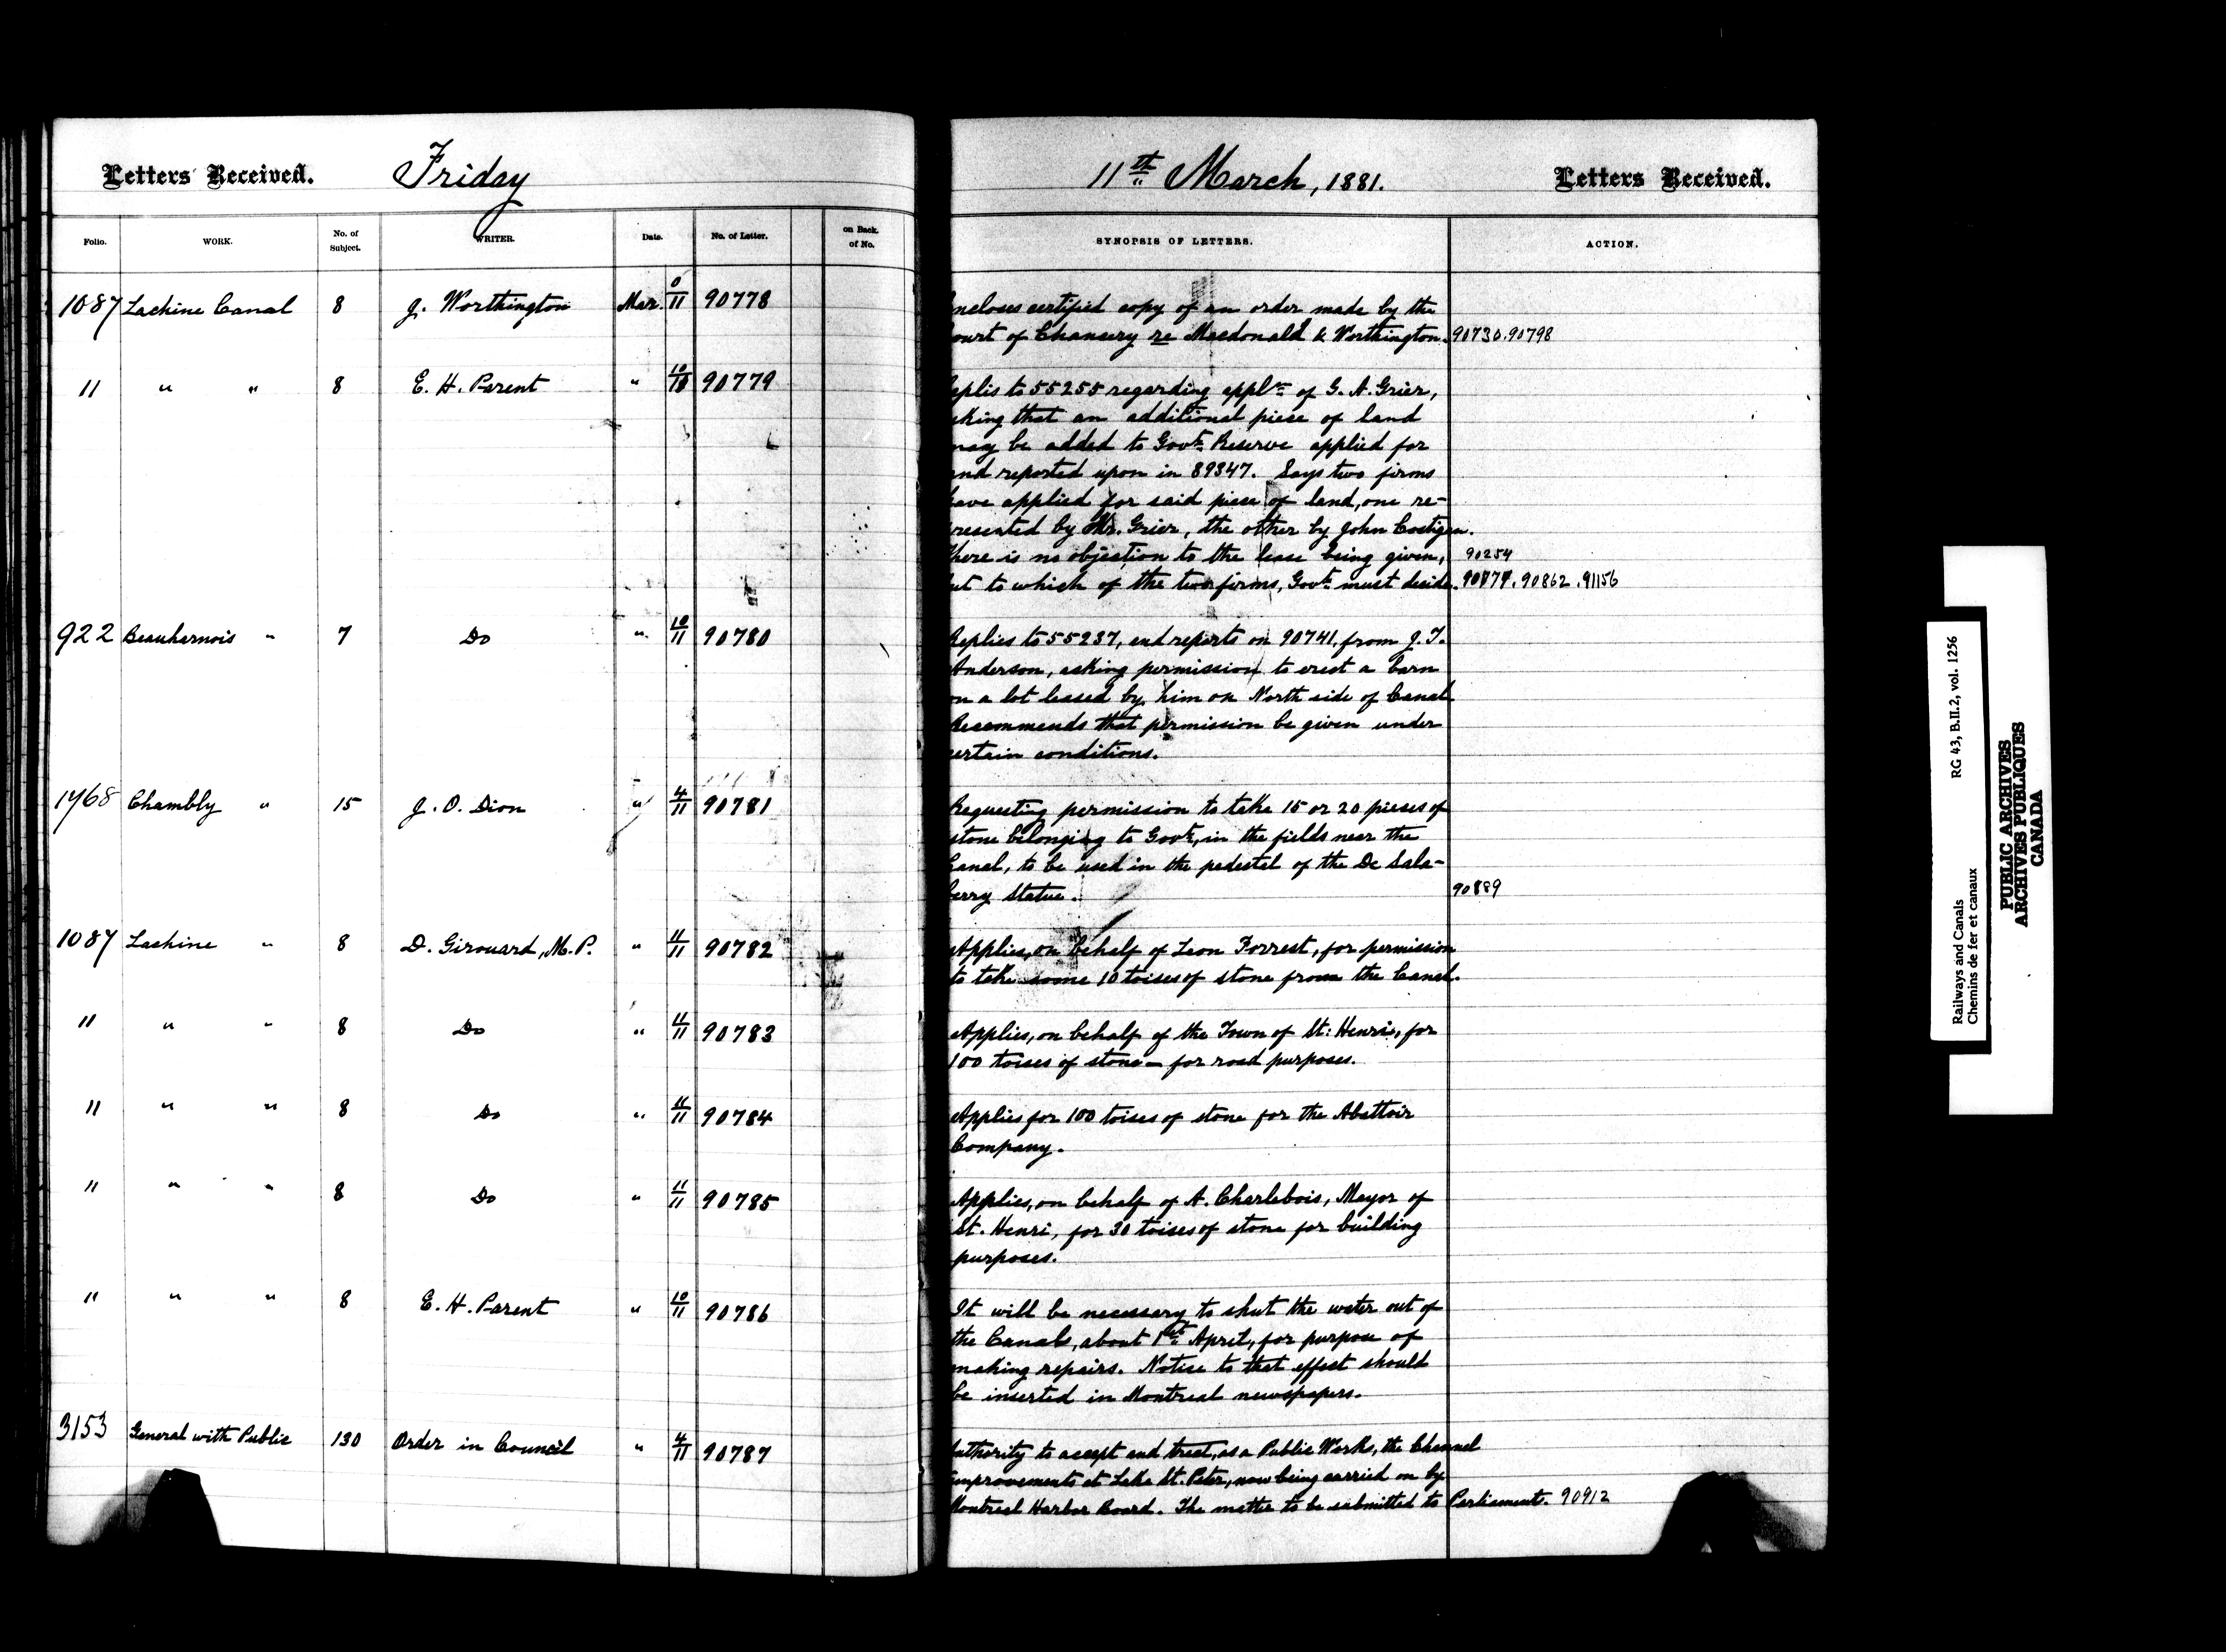 Letters Received. Friday
11th March, 1881. Letters Received.
Folio. WORK. No. of Subject. WRITER. Date. No. of Letter. on Back. of No.
SYNOPSIS OF LETTERS. ACTION.
1087 Lachine Canal 8 J. Worthington Mar. 11 90778
ncloses certified copy of an order made by the
ourt of Chancery re Macdonald & Worthington. 90730.90798
" " " 8 E. H. Parent " 10 90779
eplis to 55255 regarding appln of G. A. Grier,
sking that an additional piece of land
may be added to Govt. Reserve applied for
and reported upon in 89347. Says two firms
have applied for said piece of land, one re-
presented by Mr. Grier, the other by John Costigan.
There is no objection to the lease being given, 90254
ut to which of the two firms, Govt. must decide. 90777.90862.91156
922 Beauharnois " 7 Do " 10/11 90780
Replies to 55237, and reports on 90741, from J. T.
Anderson, asking permission to erect a barn
on a lot leased by him on North side of Canal
Recommends that permission be given under
certain conditions.
1468 Chambly " 15 J. O. Dion " 4/11 90781
Requesting permission to take 15 or 20 pieces of
stone belonging to Govt., in the fields near the
Canal, to be used in the pedestal of the De Sala-
berry Statue. 90889
1087 Lachine " 8 D. Girouard, M.P. " 11/11 90782
Applies, on behalf of Leon Forrest, for permission
to take some 10 toises of stone from the Canal.
" " " 8 Do " 11/11 90783
Applies, on behalf of the Town of St: Henri, for
100 toises of stone - for road purposes.
" " " 8 Do " 11/11 90784
Applies for 100 toises of stone for the Abattoir
Company.
" " " 8 Do " 11/11 90785
Applies, on behalf of A. Charlebois, Mayor of
St. Henri, for 30 toises of stone for building
purposes.
" " " 8 E. H. Parent " 10/11 90786
It will be necessary to shut the water out of
the Canals, about 1st April, for purpose of
making repairs. Notice to that effect should
be inserted in Montreal newspapers.
3153 General with Public 130 Order in Council " 4/11 90787
Authority to accept and treat, as a Public Works, the Channel
improvements at Lake St. Peter, now being carried on by
Montreal Harbor Board. The matter to be submitted to Parliament. 90912
Railways and Canals RG 43, B.II.2, vol. 1256
Chemins de fer et canaux
PUBLIC ARCHIVES
ARCHIVES PUBLIQUES
CANADA